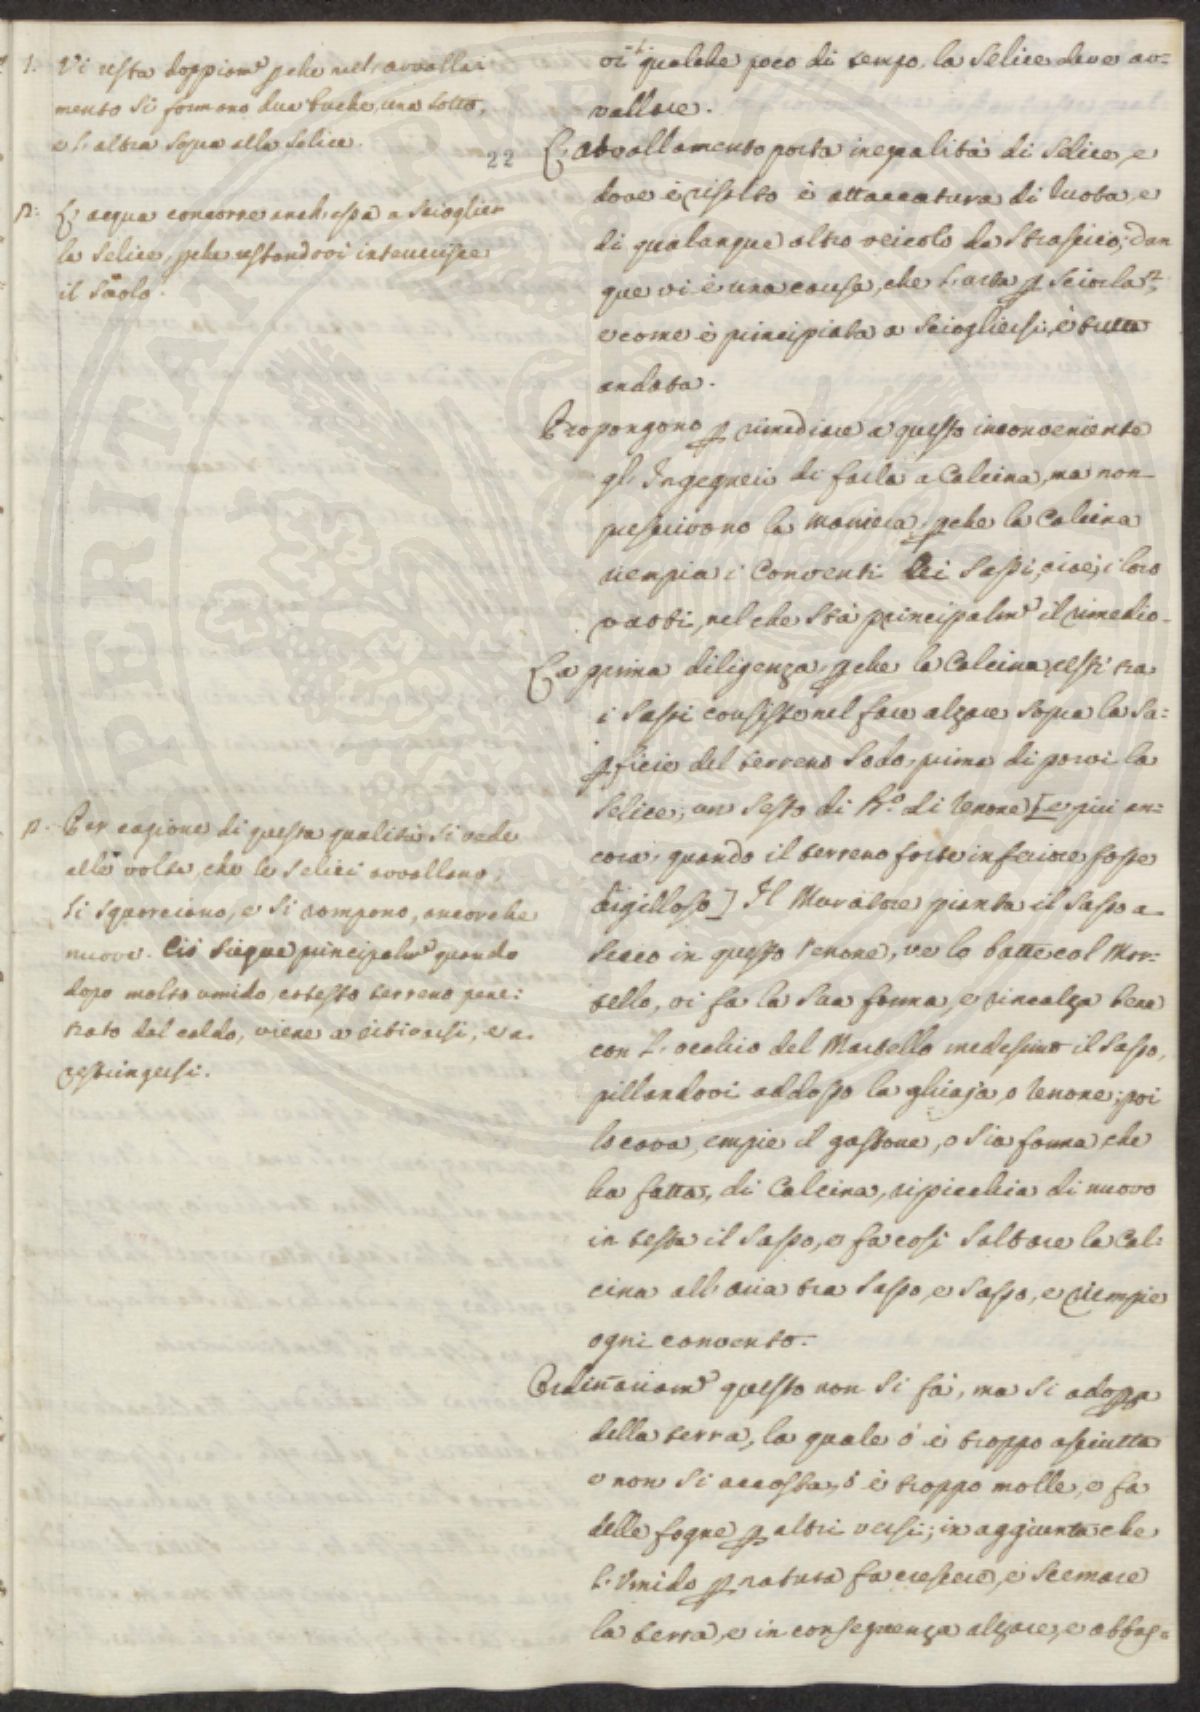 1. Vi resta doppiam.e p che nell'avvalla:
mento si formano due buche, una sotto,
e l'altra sopra alla selice.
2. L'acqua concorre anch'essa a scioglier
la selice, p che restandovi intenerisce
il suolo.
22
2. Per cagione di questa qualità si vede
alle volte, che le selici avvallano,
si squarciano, e si rompono, ancorche
nuove. Ciò siegue principalm.e quando
dopo molto umido, cotesto terreno pene:
trato dal caldo, viene a ritirarsi, e a
restringersi.
qualche poco di tempo, la Selice deve av=
vallare.
L'avvallamento porta inegualità di Selice, e
dove è risalto è attaccatura di Ruota, e
di qualunque altro veicolo da Strascico; dun
que vi è una causa, che l'urta p sciorla
e come è principiata a sciogliersi, è tutta
andata.
Propongono p rimediare a questo inconveniente
gl'Ingegneri di farla a Calcina, ma non
prescrivono la maniera, p che la Calcina
riempia i Conventi dei Sassi, cioè, i loro
vuoti, nel che stà principalm.e il rimedio.
La prima diligenza, p che la Calcina resti tra
i Sassi consiste nel fare alzare sopra la Su:
p ficie del terreno Sodo, prima di porvi la
Selice, un Sesto di B.o di Renone [e più an=
cora, quando il terreno forte inferiore fosse
argilloso] Il Muratore pianta il Sasso a
secco in questo Renone, ve lo batte col Mar:
tello, vi fa la sua forma, e rincalza bene
con l'occhio del Martello medesimo il Sasso,
pillandovi addosso la ghiaja, o Renone; poi
lo cava, empie il gastone, o sia forma che
ha fatta, di Calcina, ripicchia di nuovo
in testa il Sasso, e fa così Saltare la Cal:
cina all'aria tra Sasso, e Sasso, e riempie
ogni convento.
Ordinariam.e questo non si fà, ma si adopra
della terra, la quale ò è troppo asciutta
e non si accosta, ò è troppo molle, e fa
delle fogne p altri versi; in aggiunta che
l'Umido p natura fa crescere, e scemare
la terra, e in conseguenza alzare, e abbas=